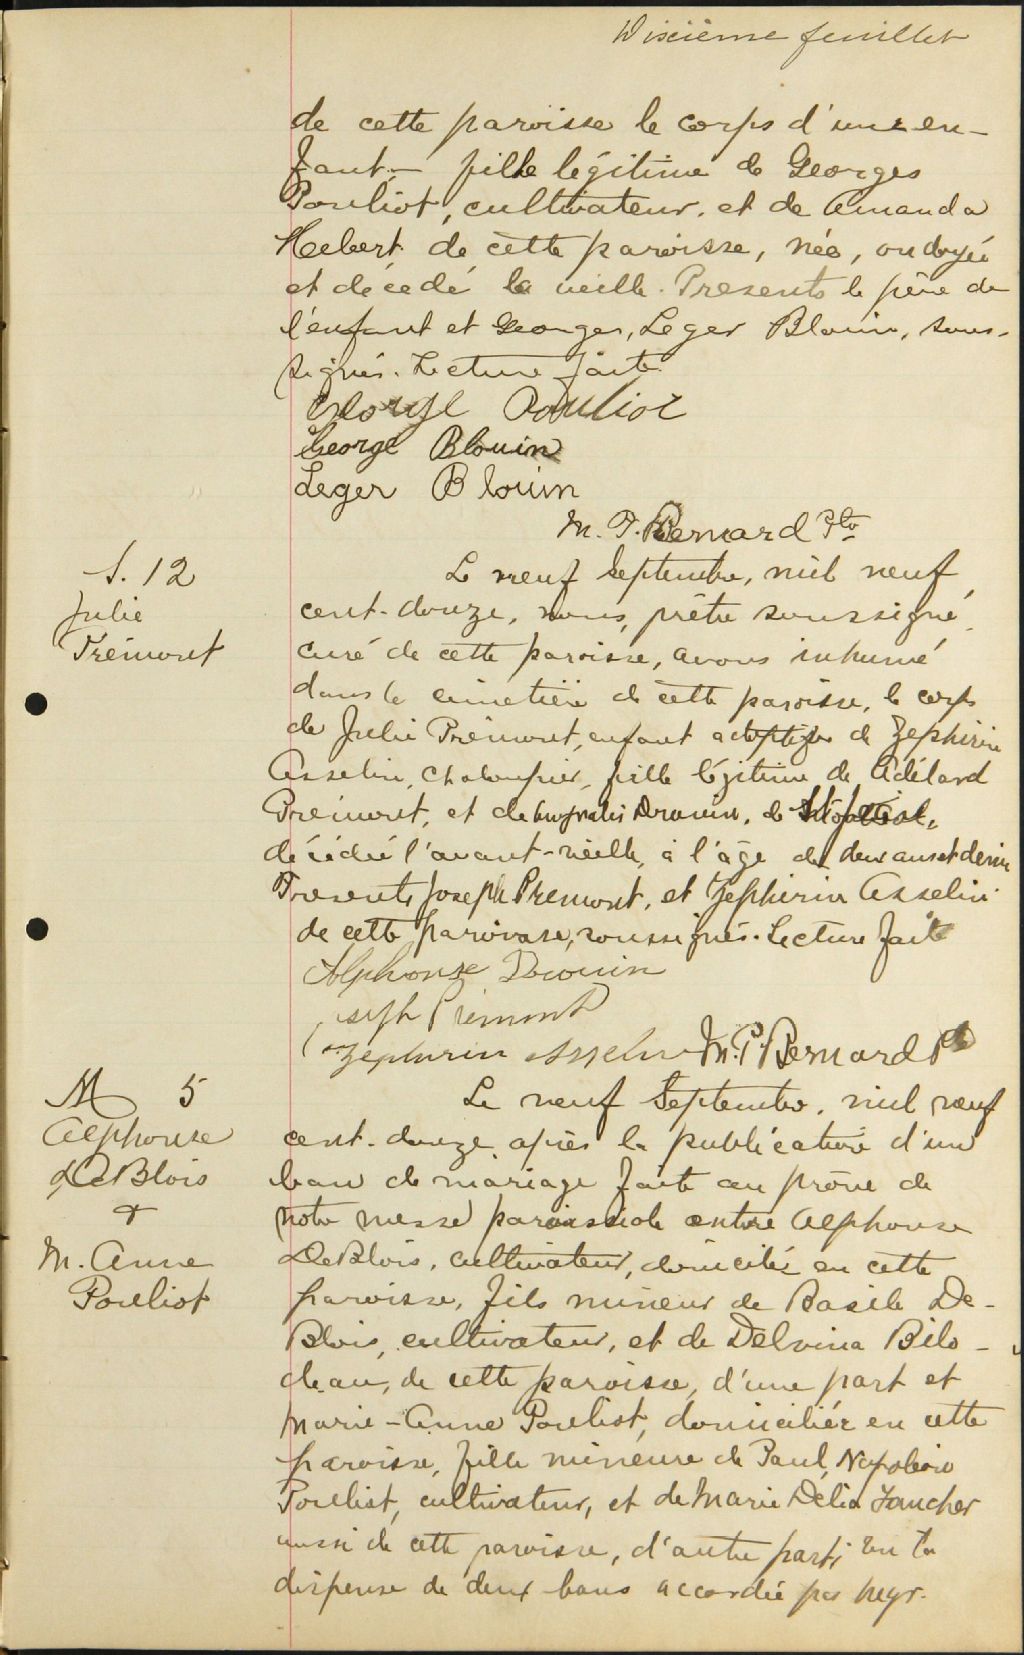 Dixième feuillet
de cette paroisse le corps d'une en-
fant - fille légitime de Georges
Pouliot, cultivateur, et de Amanda
Hebert de cette paroisse, née, ondoyée
et décédé la veille. Presents le père de
l'enfant et Georges, Leger Blouin, sous-
signés. Lecture faite
George Pouliot
George Blouin
Leger Blouin
M. P. Bernard Ptre
S. 12
Julie
Prémont
Le neuf Septembre, mil neuf
cent-douze, nous, prêtre soussigné
curé de cette paroisse, avons inhumé
dans le cimetière de cette paroisse, le corps
de Julie Prémont, enfant adoptif de Zephirin
Asselin, Chaloupier, fille légitime de Adélard
Prémont, et de Drouin, de
décédée l'avant-veille, à l'âge de deux ans et demi
Presents Joseph Premont, et Zephirin Asselin
de cette paroisse, soussignés. Lecture faite
Alphonse Drouin
Joseph Prémont
Zephirin Asselin M. P. Bernard Ptre
M 5
Alphonse
DeBlois
+
M. Anne
Pouliot
Le neuf Septembre, mil neuf
cent-douze, après la publication d'un
ban de mariage faite au prône de
notre messe paroissiale entre Alphonse
DeBlois, cultivateur, domicilié en cette
paroisse, fils mineur de Basile De-
Blois, cultivateur, et de Delvina Bilo-
deau, de cette paroisse, d'une part et
Marie-Anne Pouliot, domiciliée en cette
paroisse, fille mineure de Paul, Napoléon
Pouliot, cultivateur, et de Marie Délia Foucher
aussi de cette paroisse, d'autre part; vu la
dispense de deux bans accordée par Mgr.